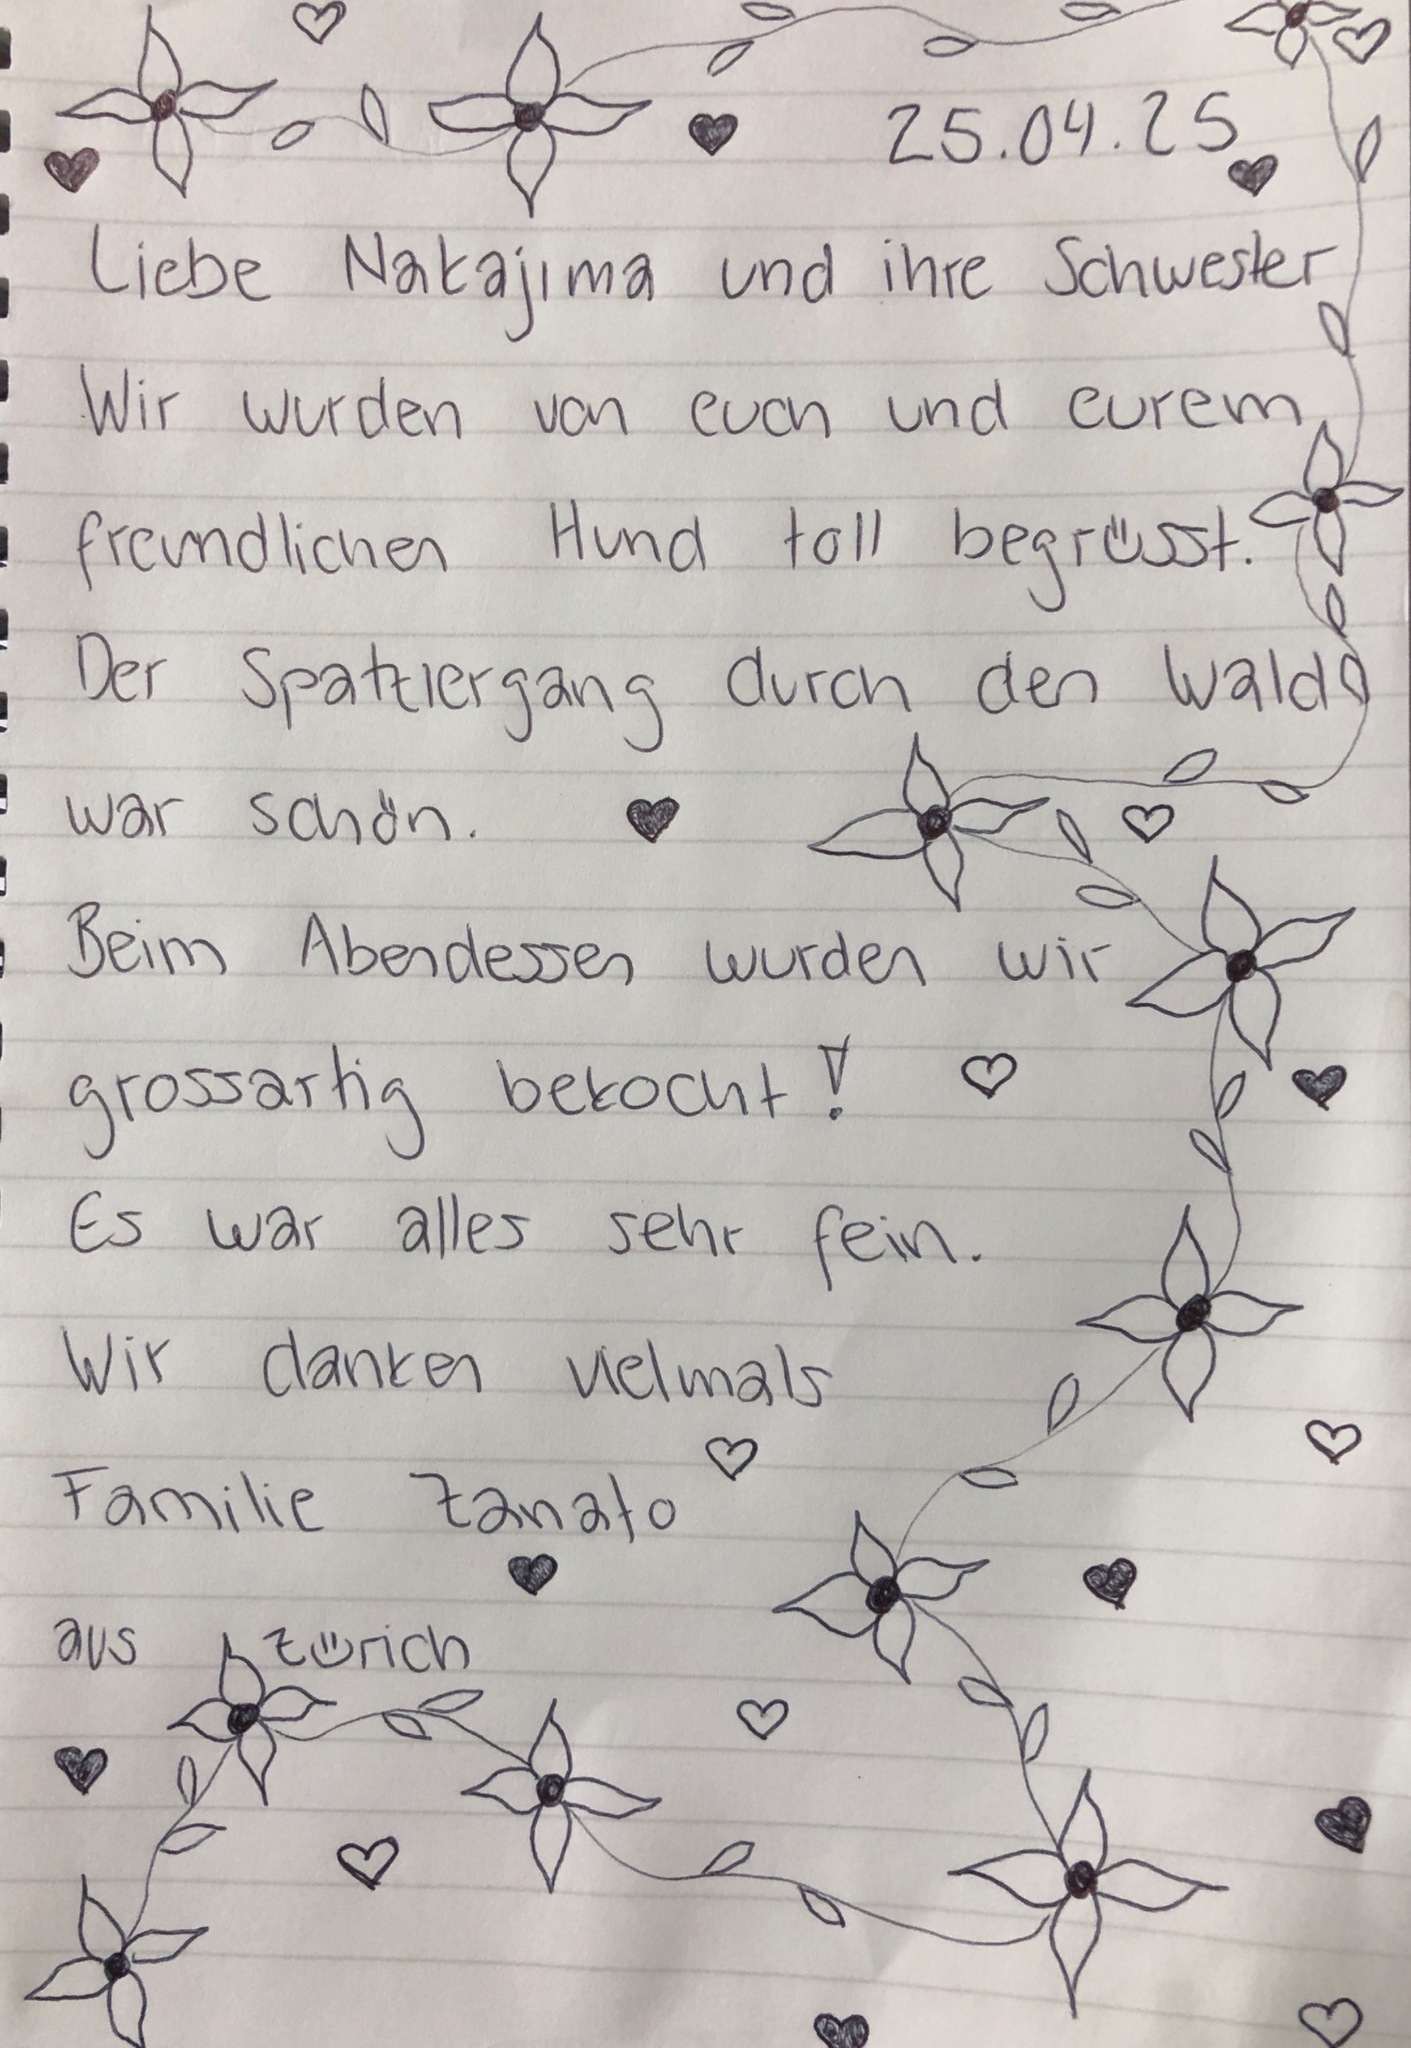 25.04.25
Liebe Nakajima und ihre Schwester
Wir wurden von euch und eurem
freundlichen Hund toll begrüsst.
Der Spatziergang durch den Wald
war schön.
Beim Abendessen wurden wir
grossartig bekocht!
Es war alles sehr fein.
Wir danken vielmals
Familie Zanato
aus Zürich